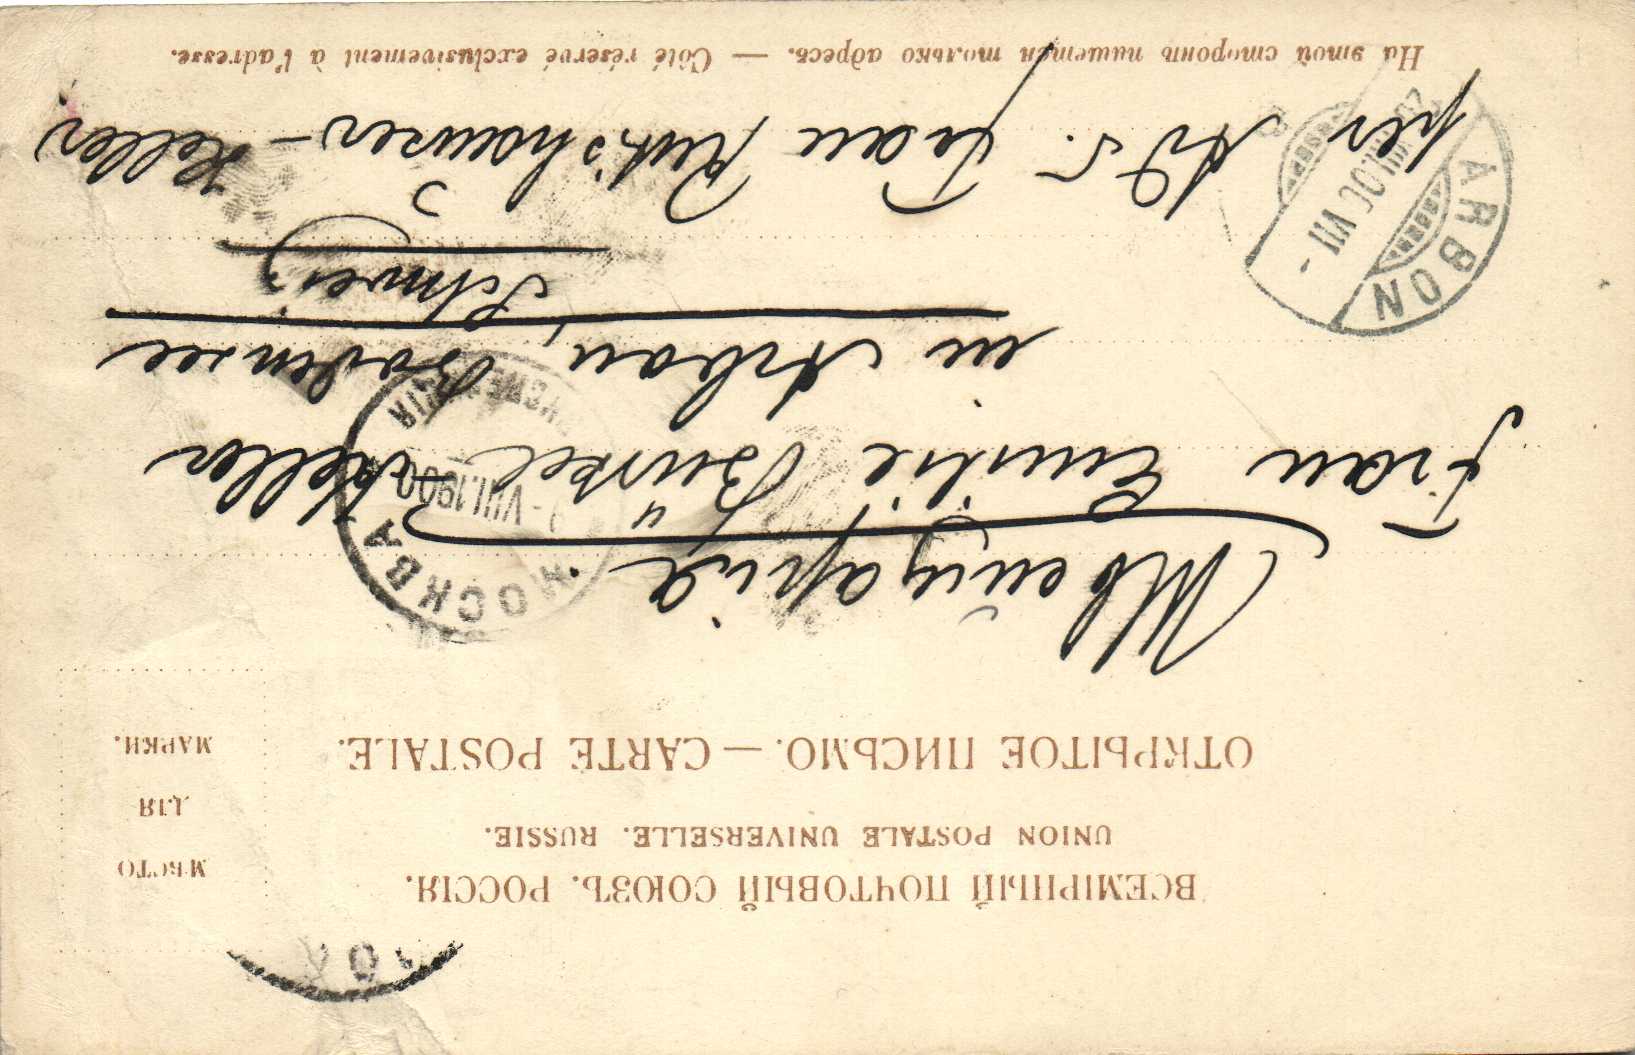 ВСЕМІРНЫЙ ПОЧТОВЫЙ СОЮЗЪ. РОССІЯ.
UNION POSTALE UNIVERSELLE. RUSSIE.
ОТКРЫТОЕ ПИСЬМО. — CARTE POSTALE.
МѢСТО
ДЛЯ
МАРКИ.
МОСКВА
VIII.1900
Швейцарія
Frau Emilie Bürkel-Keller
in Arbon, Bodensee
Schweiz
per Adr. Frau Rutishauser-Keller
ARBON
VIII.00 VII-
На этой сторонѣ пишется только адресъ. — Côté réservé exclusivement à l'adresse.